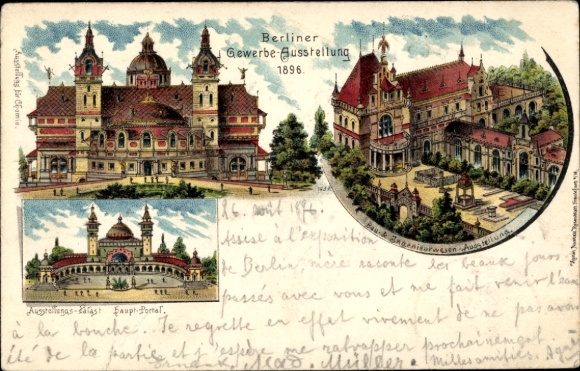 Berliner
Gewerbe-Ausstellung
1896.
Ausstellung für Chemie
Bau & Ingenieurwesen-Ausstellung
Ausstellungs-Palast Haupt-Portal.
26. août 1896.
Assise à l'exposition
de Berlin, mère raconte les beaux jours
passés avec vous et me fait venir l'eau
à la bouche. Je regrette en effet vivement de ne pas avoir
été de la partie et j'espère me rattraper prochainement.
Mad. Müller. Milles amitiés,